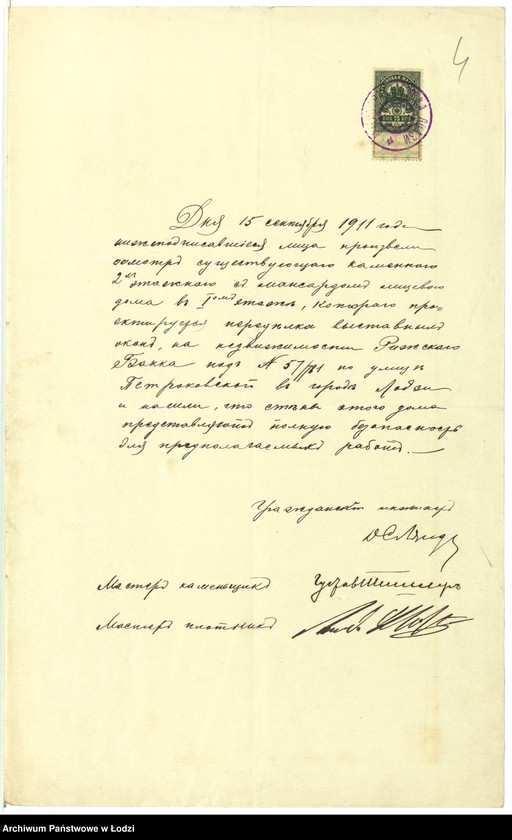 4
Дня 15 сентября 1911 года
нижеподписавшіеся лица произвели
осмотръ существующаго каменного
2хъ этажного съ мансардомъ лицевого
дома въ Iомъ этажѣ, которого про-
ектируется передѣлка выставныхъ
оконъ, на недвижимости Рижского
Банка подъ № 57/781 по улицѣ
Петроковской въ городѣ Лодзи
и нашли, что стѣны этого дома
представляютъ полную безопасность
для предполагаемыхъ работъ.
Гражданскій инженеръ
Мастеръ каменьщикъ
Мастеръ плотникъ
Archiwum Państwowe w Łodzi